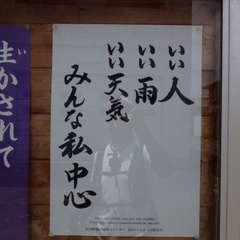 いい人
いい雨
いい天気
みんな私中心
生かされて
い